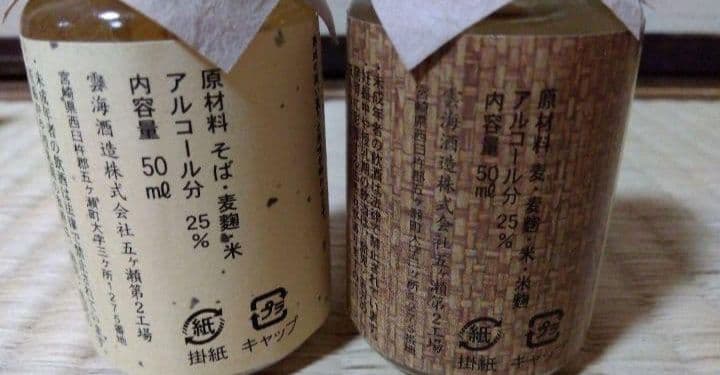 原材料 そば・麦麹・米
アルコール分 25%
内容量 50ml
雲海酒造株式会社 五ヶ瀬第2工場
宮崎県西臼杵郡五ヶ瀬町大字三ヶ所1275番地
紙
掛紙
プラ
キャップ
原材料 麦・麦麹・米・米麹
アルコール分 25%
内容量 50ml
雲海酒造株式会社 五ヶ瀬第2工場
宮崎県西臼杵郡五ヶ瀬町大字三ヶ所1275番地
未成年者の飲酒は法律で禁止されています
紙
掛紙
プラ
キャップ